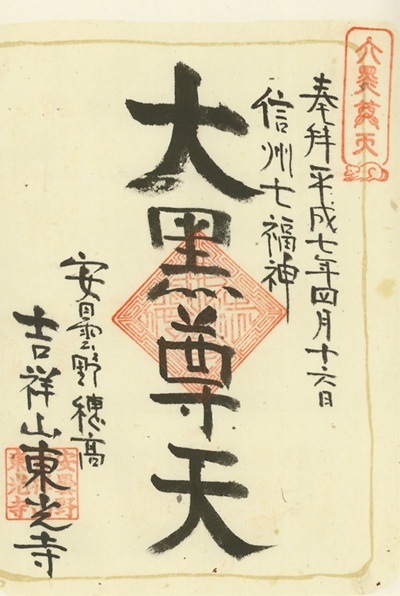 奉拝 平成七年四月十六日
信州七福神
大黒尊天
安曇野穂高
吉祥山東光寺
大黒尊天
安曇野
東光寺